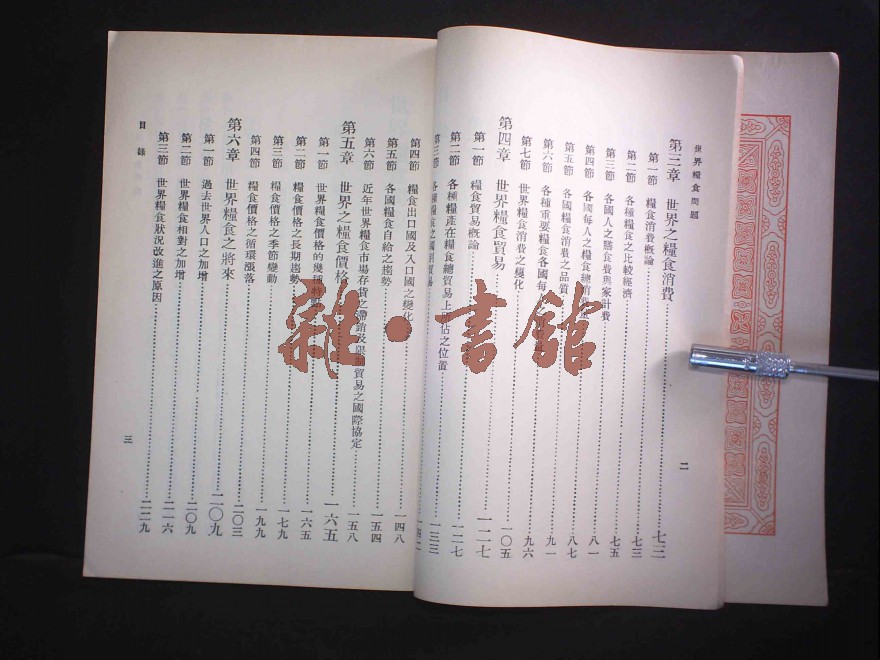 世界糧食問題
第三章 世界之糧食消費……七三
第一節 糧食消費概論……七三
第二節 各種糧食之比較經濟……七五
第三節 各國人之膳食費與家計費……八一
第四節 各國每人之糧食總消費……八七
第五節 各國糧食消費之品質……九一
第六節 各種重要糧食各國每……九六
第七節 世界糧食消費之變化……一〇五
第四章 世界糧食貿易……一一七
第一節 糧食貿易概論……一一七
第二節 各種糧產在糧食總貿易上所佔之位置……一三三
第三節 各種糧食之國際貿易……一四二
二
第四節 糧食出口國及入口國之變化……一四八
第五節 各國糧食自給之趨勢……一五四
第六節 近年世界糧食市場存貨之滯銷及限制貿易之國際協定……一五八
第五章 世界之糧食價格……一六五
第一節 世界糧食價格的幾種特點……一六五
第二節 糧食價格之長期趨勢……一七九
第三節 糧食價格之季節變動……一九九
第四節 糧食價格之循環漲落……二〇三
第六章 世界糧食之將來……二〇九
第一節 過去世界人口之加增……二〇九
第二節 世界糧食相對之加增……二一六
第三節 世界糧食狀況改進之原因……二二九
目錄
三
雜·書館